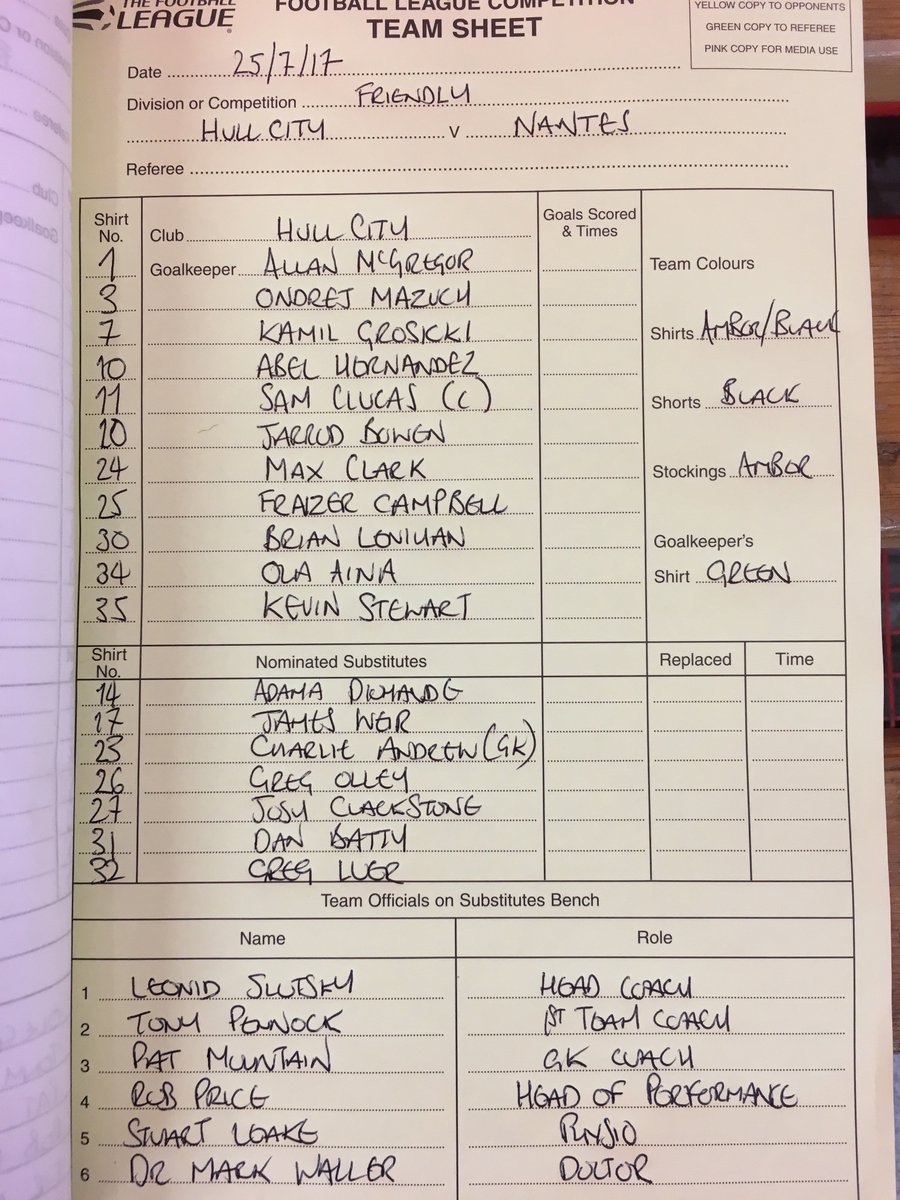 THE FOOTBALL
LEAGUE
FOOTBALL LEAGUE COMPETITION
TEAM SHEET
YELLOW COPY TO OPPONENTS
GREEN COPY TO REFEREE
PINK COPY FOR MEDIA USE
Date 25/7/17
Division or Competition FRIENDLY
HULL CITY v NANTES
Referee
Shirt No. Club HULL CITY Goals Scored & Times
1 Goalkeeper ALLAN McGREGOR Team Colours
3 ONDREJ MAZUCH
7 KAMIL GROSICKI Shirts AMBER/BLACK
10 ABEL HERNANDEZ
11 SAM CLUCAS (C) Shorts BLACK
20 JARROD BOWEN
24 MAX CLARK Stockings AMBER
25 FRAIZER CAMPBELL
30 BRIAN LENIHAN Goalkeeper's
34 OLA AINA Shirt GREEN
35 KEVIN STEWART
Shirt No. Nominated Substitutes Replaced Time
14 ADAMA DIOMANDE
17 JAMES WEIR
23 CHARLIE ANDREW (GK)
26 GREG OLLEY
27 JOSH CLACKSTONE
31 DAN BATTY
32 GREG LUER
Team Officials on Substitutes Bench
Name Role
1 LEONID SLUTSKY HEAD COACH
2 TONY PENNOCK 1ST TEAM COACH
3 PAT MOUNTAIN GK COACH
4 ROB PRICE HEAD OF PERFORMANCE
5 STUART LEAKE PHYSIO
6 DR MARK WALLER DOCTOR